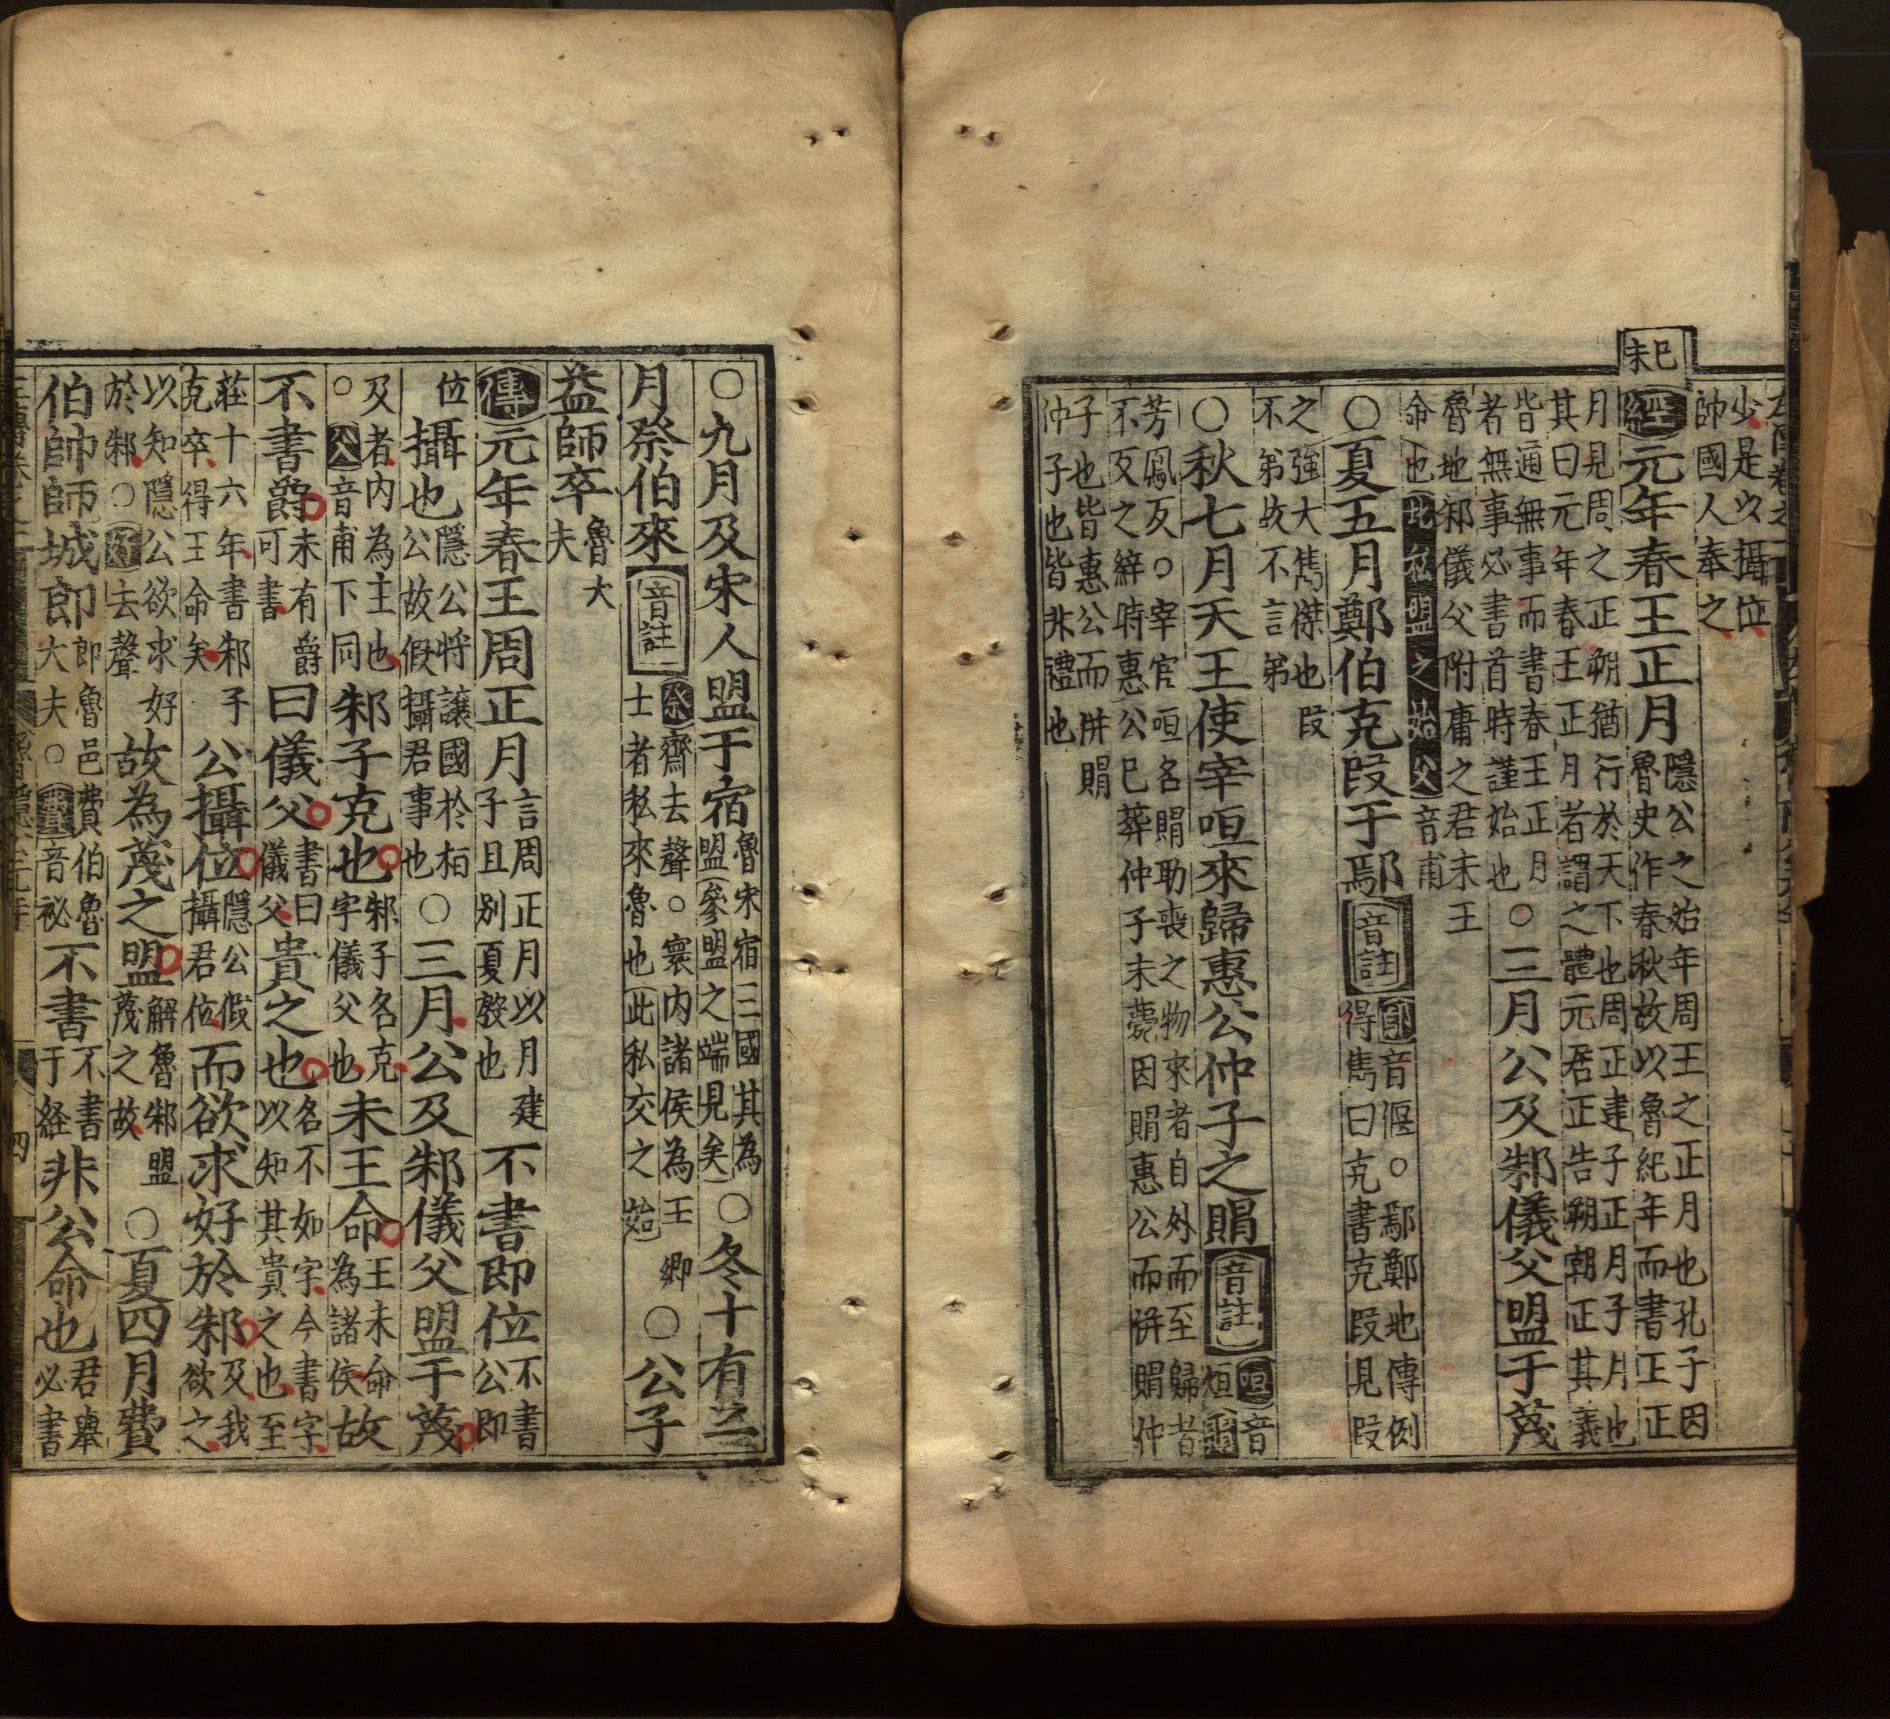 己未
少是以攝位
帥國人奉之
經元年春王正月隱公之始年周王之正月也孔子因
魯史作春秋故以魯紀年而書正正
月見周之正朔猶行於天下也周正建子正月子月也
其曰元年春王正月者謂之體元居正告朔朝正其義
皆通無事而書春王正月
者無事必書首時謹始也○三月公及邾儀父盟于蔑
魯地邾儀父附庸之君未王
命也此私盟之始父音甫
○夏五月鄭伯克段于鄢音註鄢音偃○鄢鄭地傳例
得雋曰克書克段見段
之強大雋傑也段
不弟故不言弟
○秋七月天王使宰咺來歸惠公仲子之賵音註咺音
烜賵
芳鳳反○宰官咺名賵助喪之物來者自外而至歸者
不反之辭時惠公已葬仲子未薨因賵惠公而併賵仲
子也皆惠公而併賵
仲子也皆非禮也
○九月及宋人盟于宿魯宋宿三國其為
盟參盟之端見矣○冬十有二
月祭伯來音註祭齊去聲○寰內諸侯為王卿
士者私來魯也此私交之始○公子
益師卒魯大
夫
傳元年春王周正月言周正月以月建
子且別夏殷也不書即位不書
公即
位攝也隱公將讓國於桓
公故假攝君事也○三月公及邾儀父盟于蔑
及者內為主也
○父音甫下同邾子克也邾子名克
字儀父也未王命王未命
為諸侯故
不書爵未有爵
可書曰儀父書曰
儀父貴之也名不如字今書字
以知其貴之也至
莊十六年書邾子
克卒得王命矣公攝位隱公假
攝君位而欲求好於邾及我
欲之
以知隱公欲求好
於邾○好去聲故為蔑之盟解魯邾盟
蔑之故○夏四月費
伯帥師城郎郎魯邑費伯魯
大夫○費音祕不書不書
于経非公命也君舉
必書
四